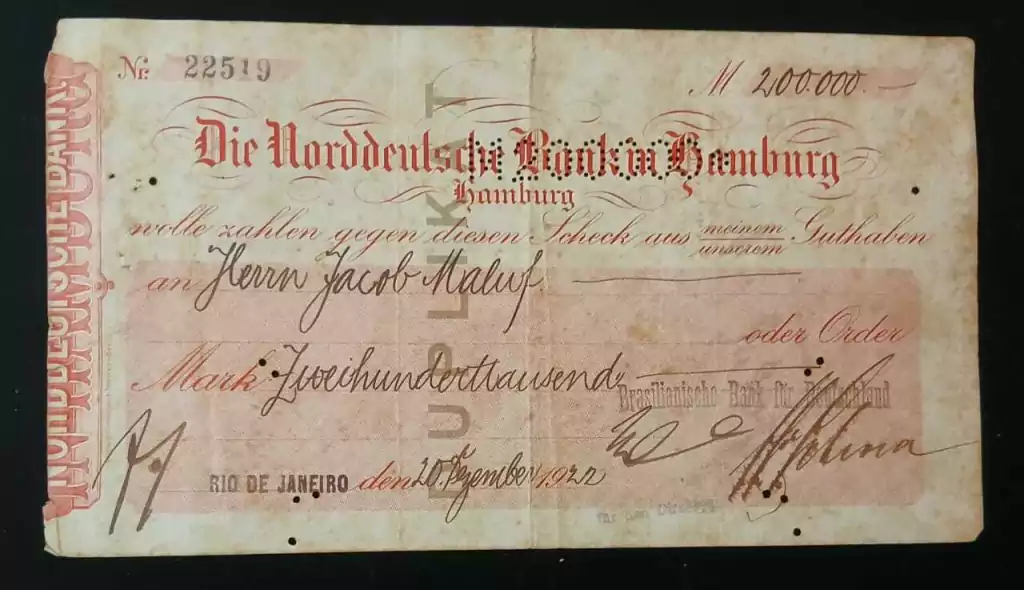 Nr. 22519
M 200.000.—
Die Norddeutsche Bank in Hamburg
Hamburg
wolle zahlen gegen diesen Scheck aus meinem / unserem Guthaben
an Herrn Jacob Maluf
oder Order
Mark Zweihunderttausend
Brasilianische Bank für Deutschland
RIO DE JANEIRO den 20 Dezember 1922
DUPLIKAT
NORDDEUTSCHE BANK